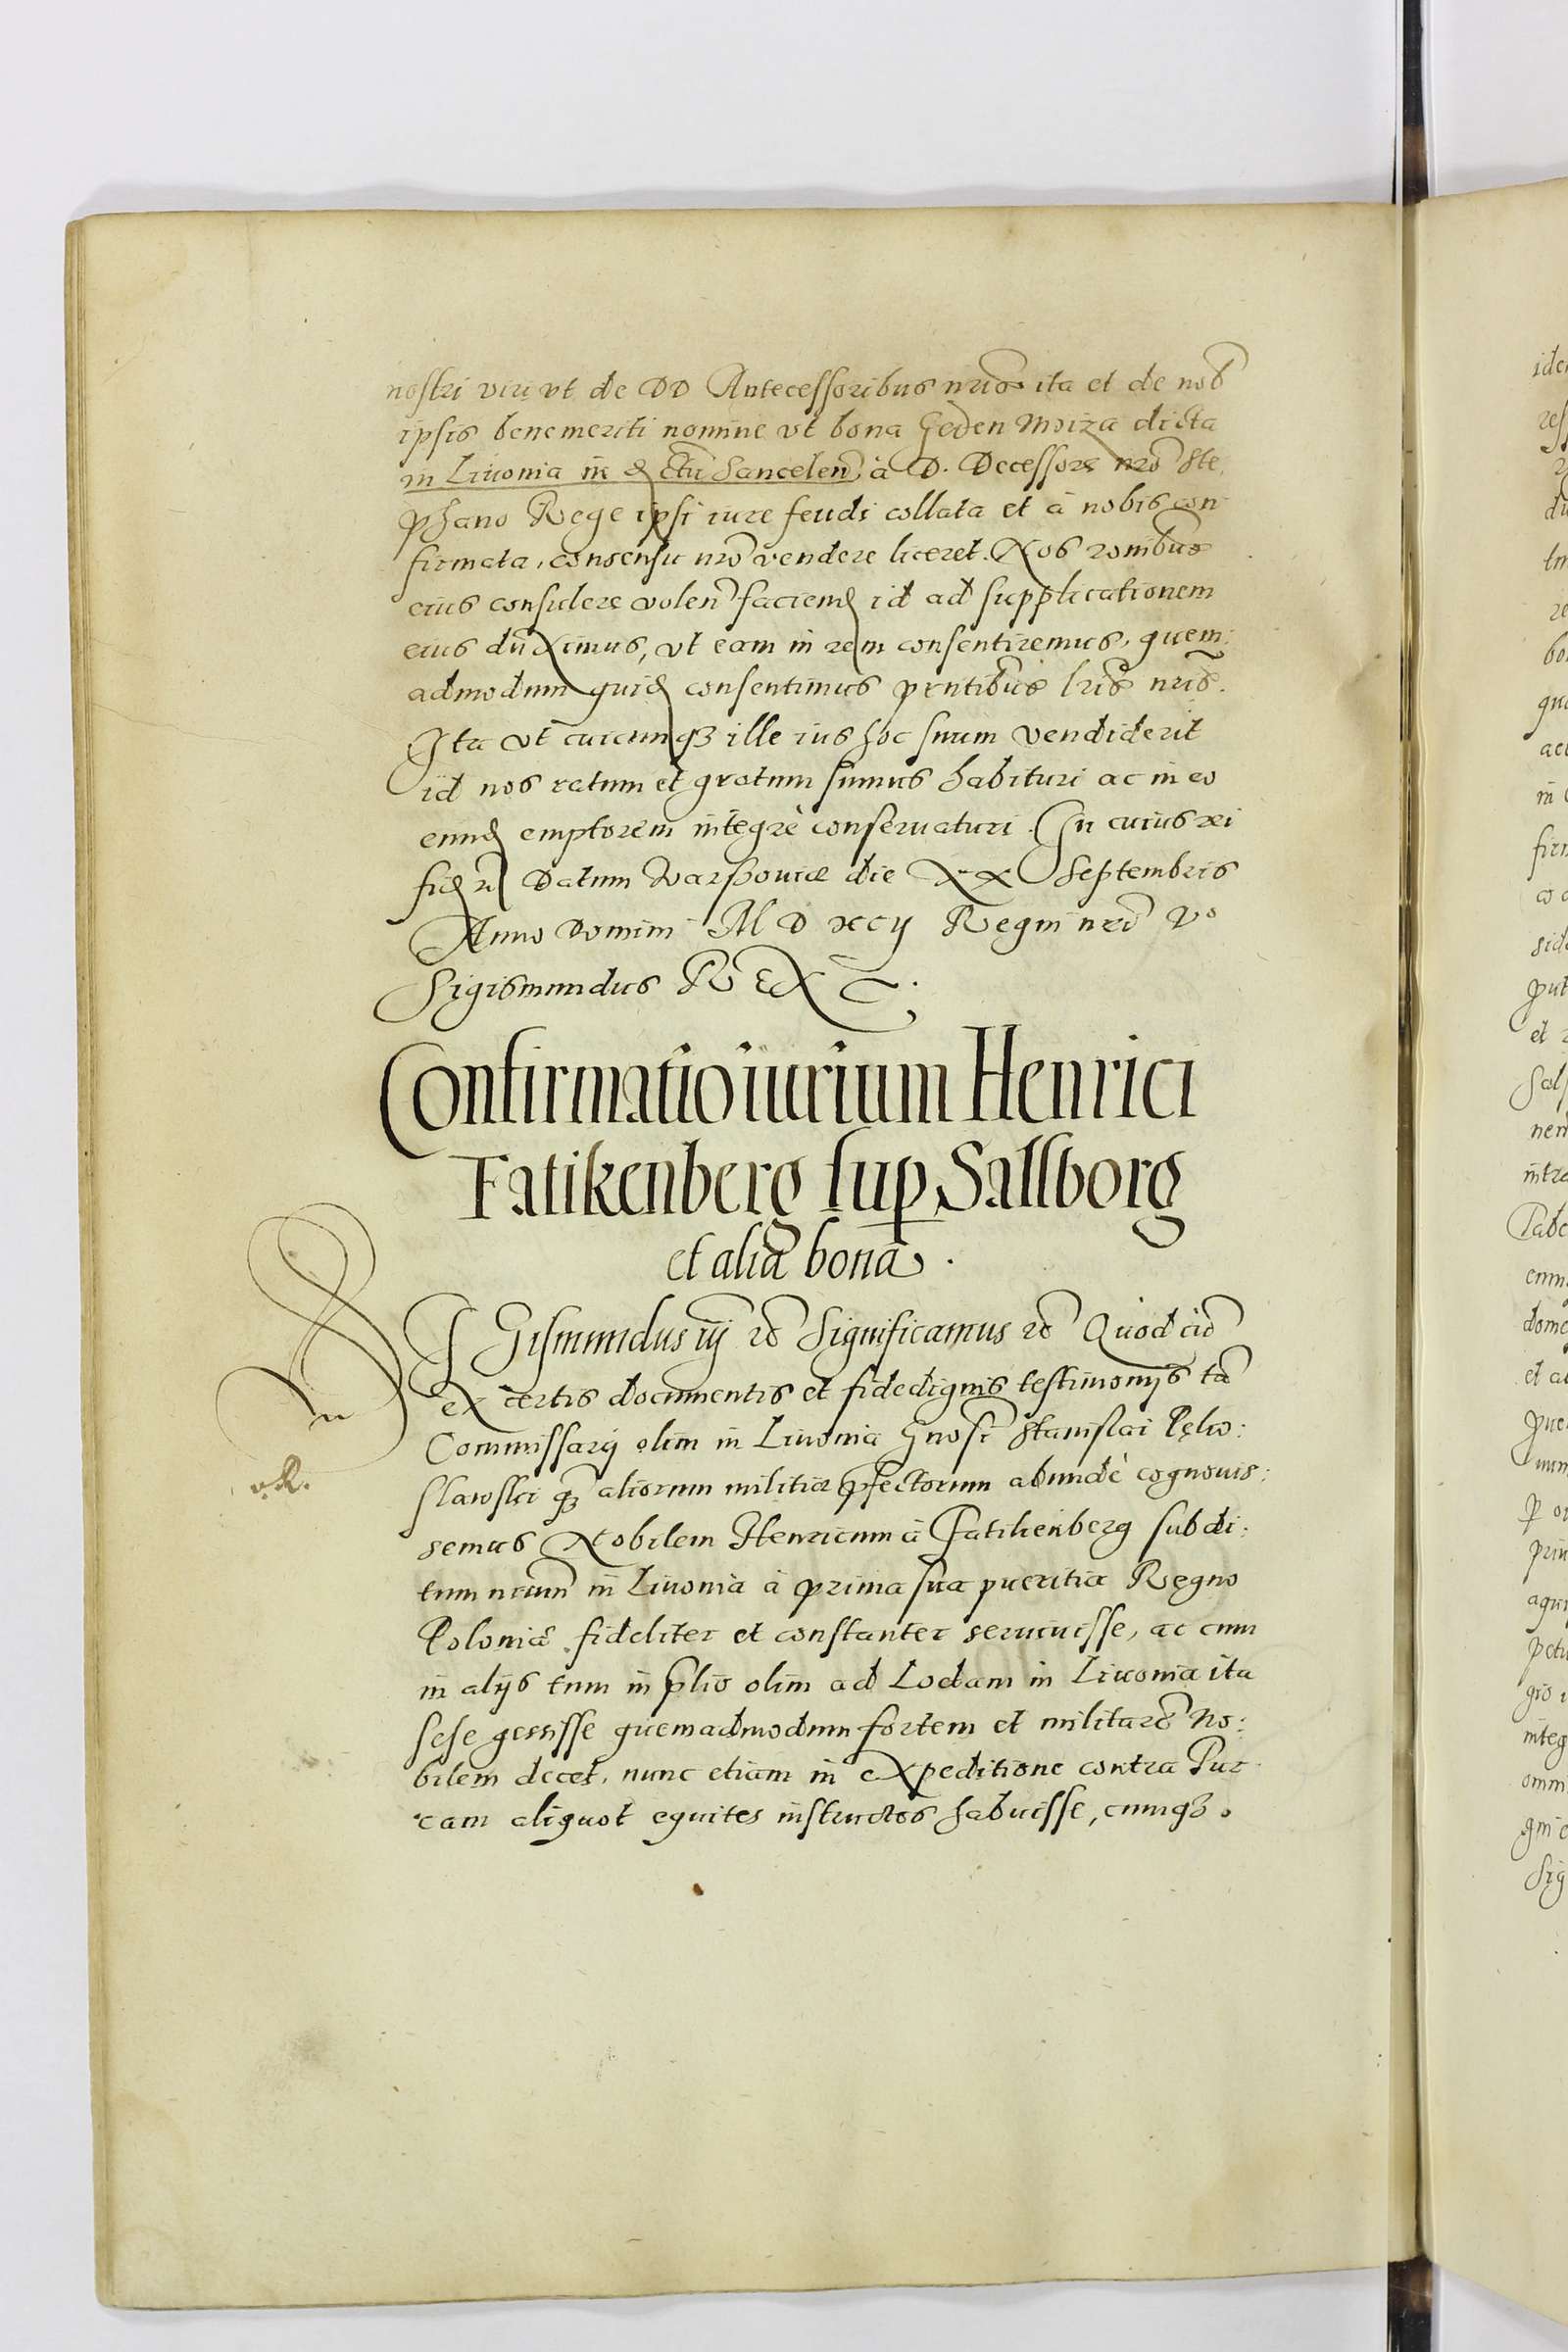 nostri viri vt de DD Antecessoribus nris ita et de nob
ipsis benemeriti nomine vt bona Heden Moiza dicta
in Liuonia in dictu Sancelen à D. Decessore nro Ste
phano Rege ipsi iure feudi collata et à nobis con
firmata, consensu nro vendere liceret. Nos ronibus
eius consulere volen faciend id ad supplicationem
eius duximus, vt eam in rem consentiremus, quem:
admodum quid consentimus pntibus lris nris.
Ita vt cuicunqȝ ille ius hoc suum vendiderit
id nos ratum et gratum sumus habituri ac in eo
eund emptorem integrè conseruaturi. In cuius rei
fid Datum Warssouiæ die XX Septembris
Anno Domini M D XCij Regni nri Vº
Sigismundus REX
Confirmatio iurium Henrici
Fatikenberg sup Sallborg
et alia bona.
SIGismundus iij Significamus Quod cu
ex certis documentis et fidedignis testimonijs ta
Commissarij olim in Liuonia Gnosi Stanislai Pękos:
slawski qȝ aliorum militiæ pfectorum abundè cognouis:
semus Nobilem Henricum à Fatikenberg subdi:
tum nrum in Liuonia à prima sua pueritia Regno
Poloniæ fideliter et constanter seruiuisse, ac cum
in alijs tum in plio olim ad Lodam in Liuonia ita
sese gessisse quemadmodum fortem et militare No:
bilem decet, nunc etiam in expeditione contra Tur
cam aliquot equites instructos habuisse, cumqȝ.